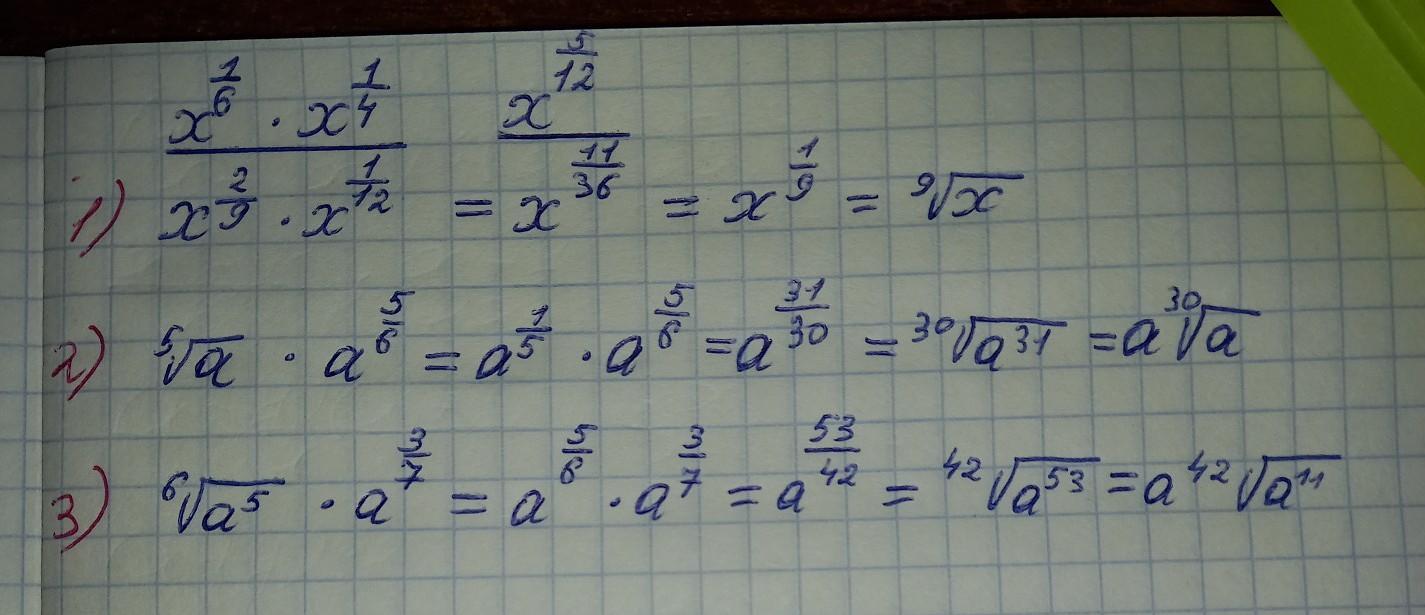 1) \frac{x^{\frac{1}{6}} \cdot x^{\frac{1}{4}}}{x^{\frac{2}{9}} \cdot x^{\frac{1}{12}}} = \frac{x^{\frac{5}{12}}}{x^{\frac{11}{36}}} = x^{\frac{1}{9}} = \sqrt[9]{x}
2) \sqrt[5]{a} \cdot a^{\frac{5}{6}} = a^{\frac{1}{5}} \cdot a^{\frac{5}{6}} = a^{\frac{31}{30}} = \sqrt[30]{a^{31}} = a\sqrt[30]{a}
3) \sqrt[6]{a^5} \cdot a^{\frac{3}{7}} = a^{\frac{5}{6}} \cdot a^{\frac{3}{7}} = a^{\frac{53}{42}} = \sqrt[42]{a^{53}} = a\sqrt[42]{a^{11}}